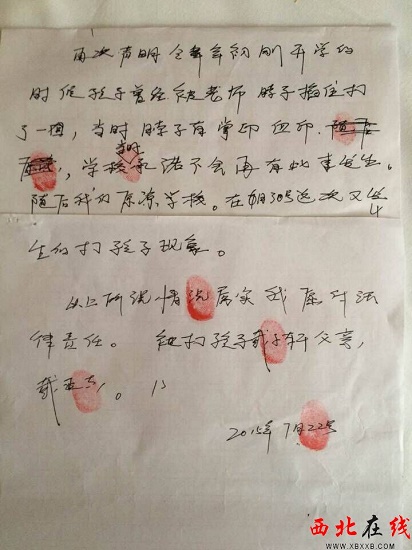 再次声明全年年初刚开学的
时候孩子曾经被老师脖子掐住打
了一顿，当时脖子有掌印血印.
当时
学校承诺不会再有此事发生。
随后我们原谅学校。在4月30号这次又发
生的打孩子现象。
以上所说情况属实我愿付法
律责任。 被打孩子戴子轩父亲，
戴
2015年7月22号
西北在线
WWW.XBXXB.COM